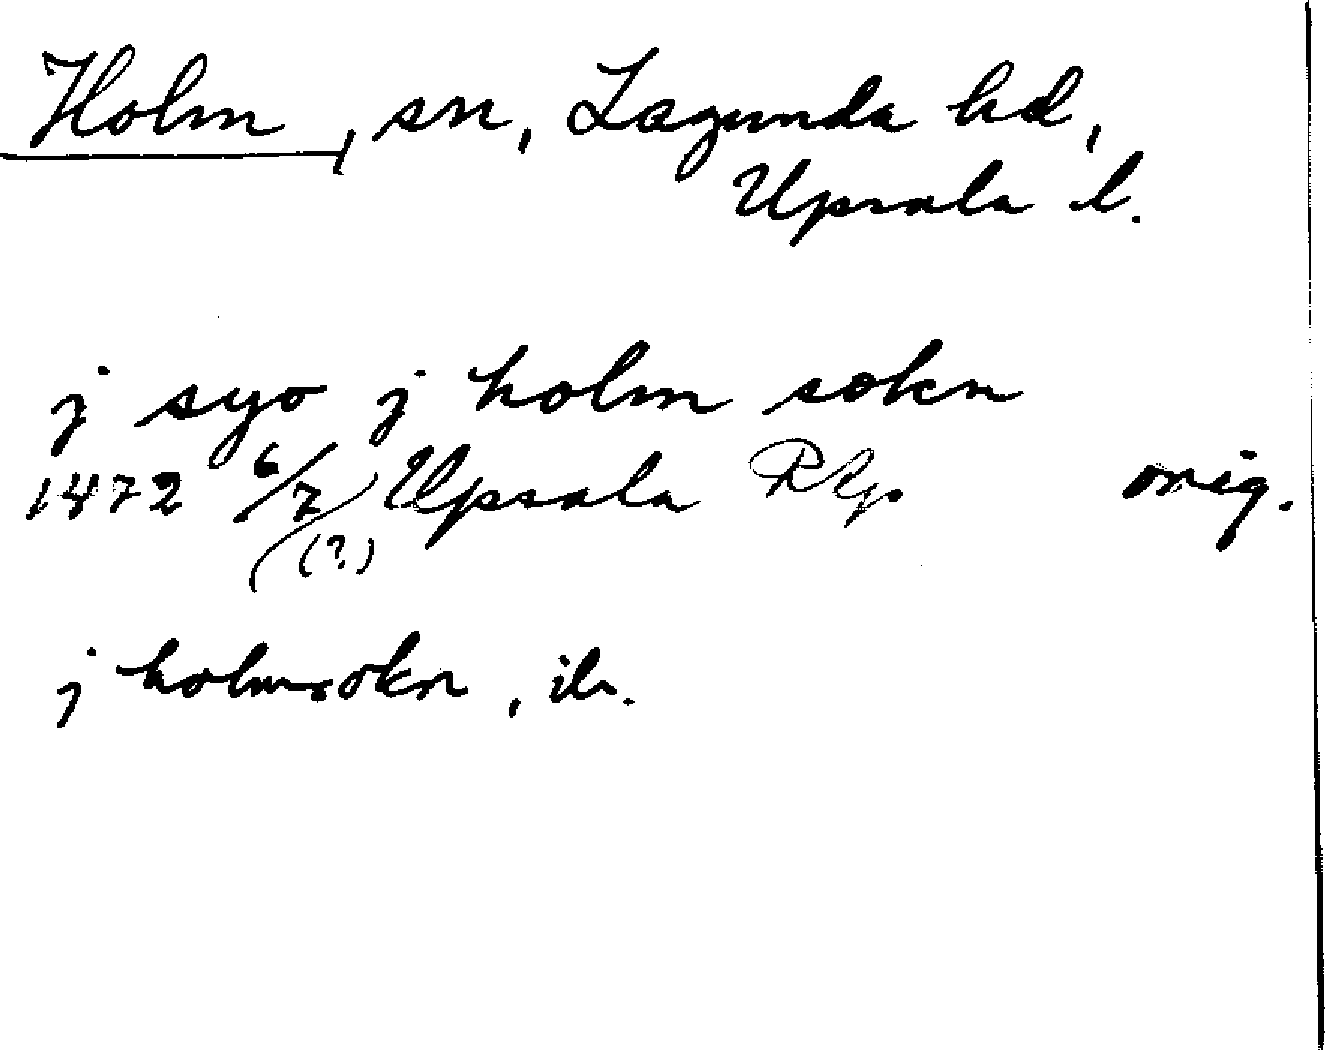 Holm, sn, Lagunda hd,
Upsala l.
j syo j holm sokn
1472 6/7 Upsala RAp orig.
(?)
j holmsokn, ib.